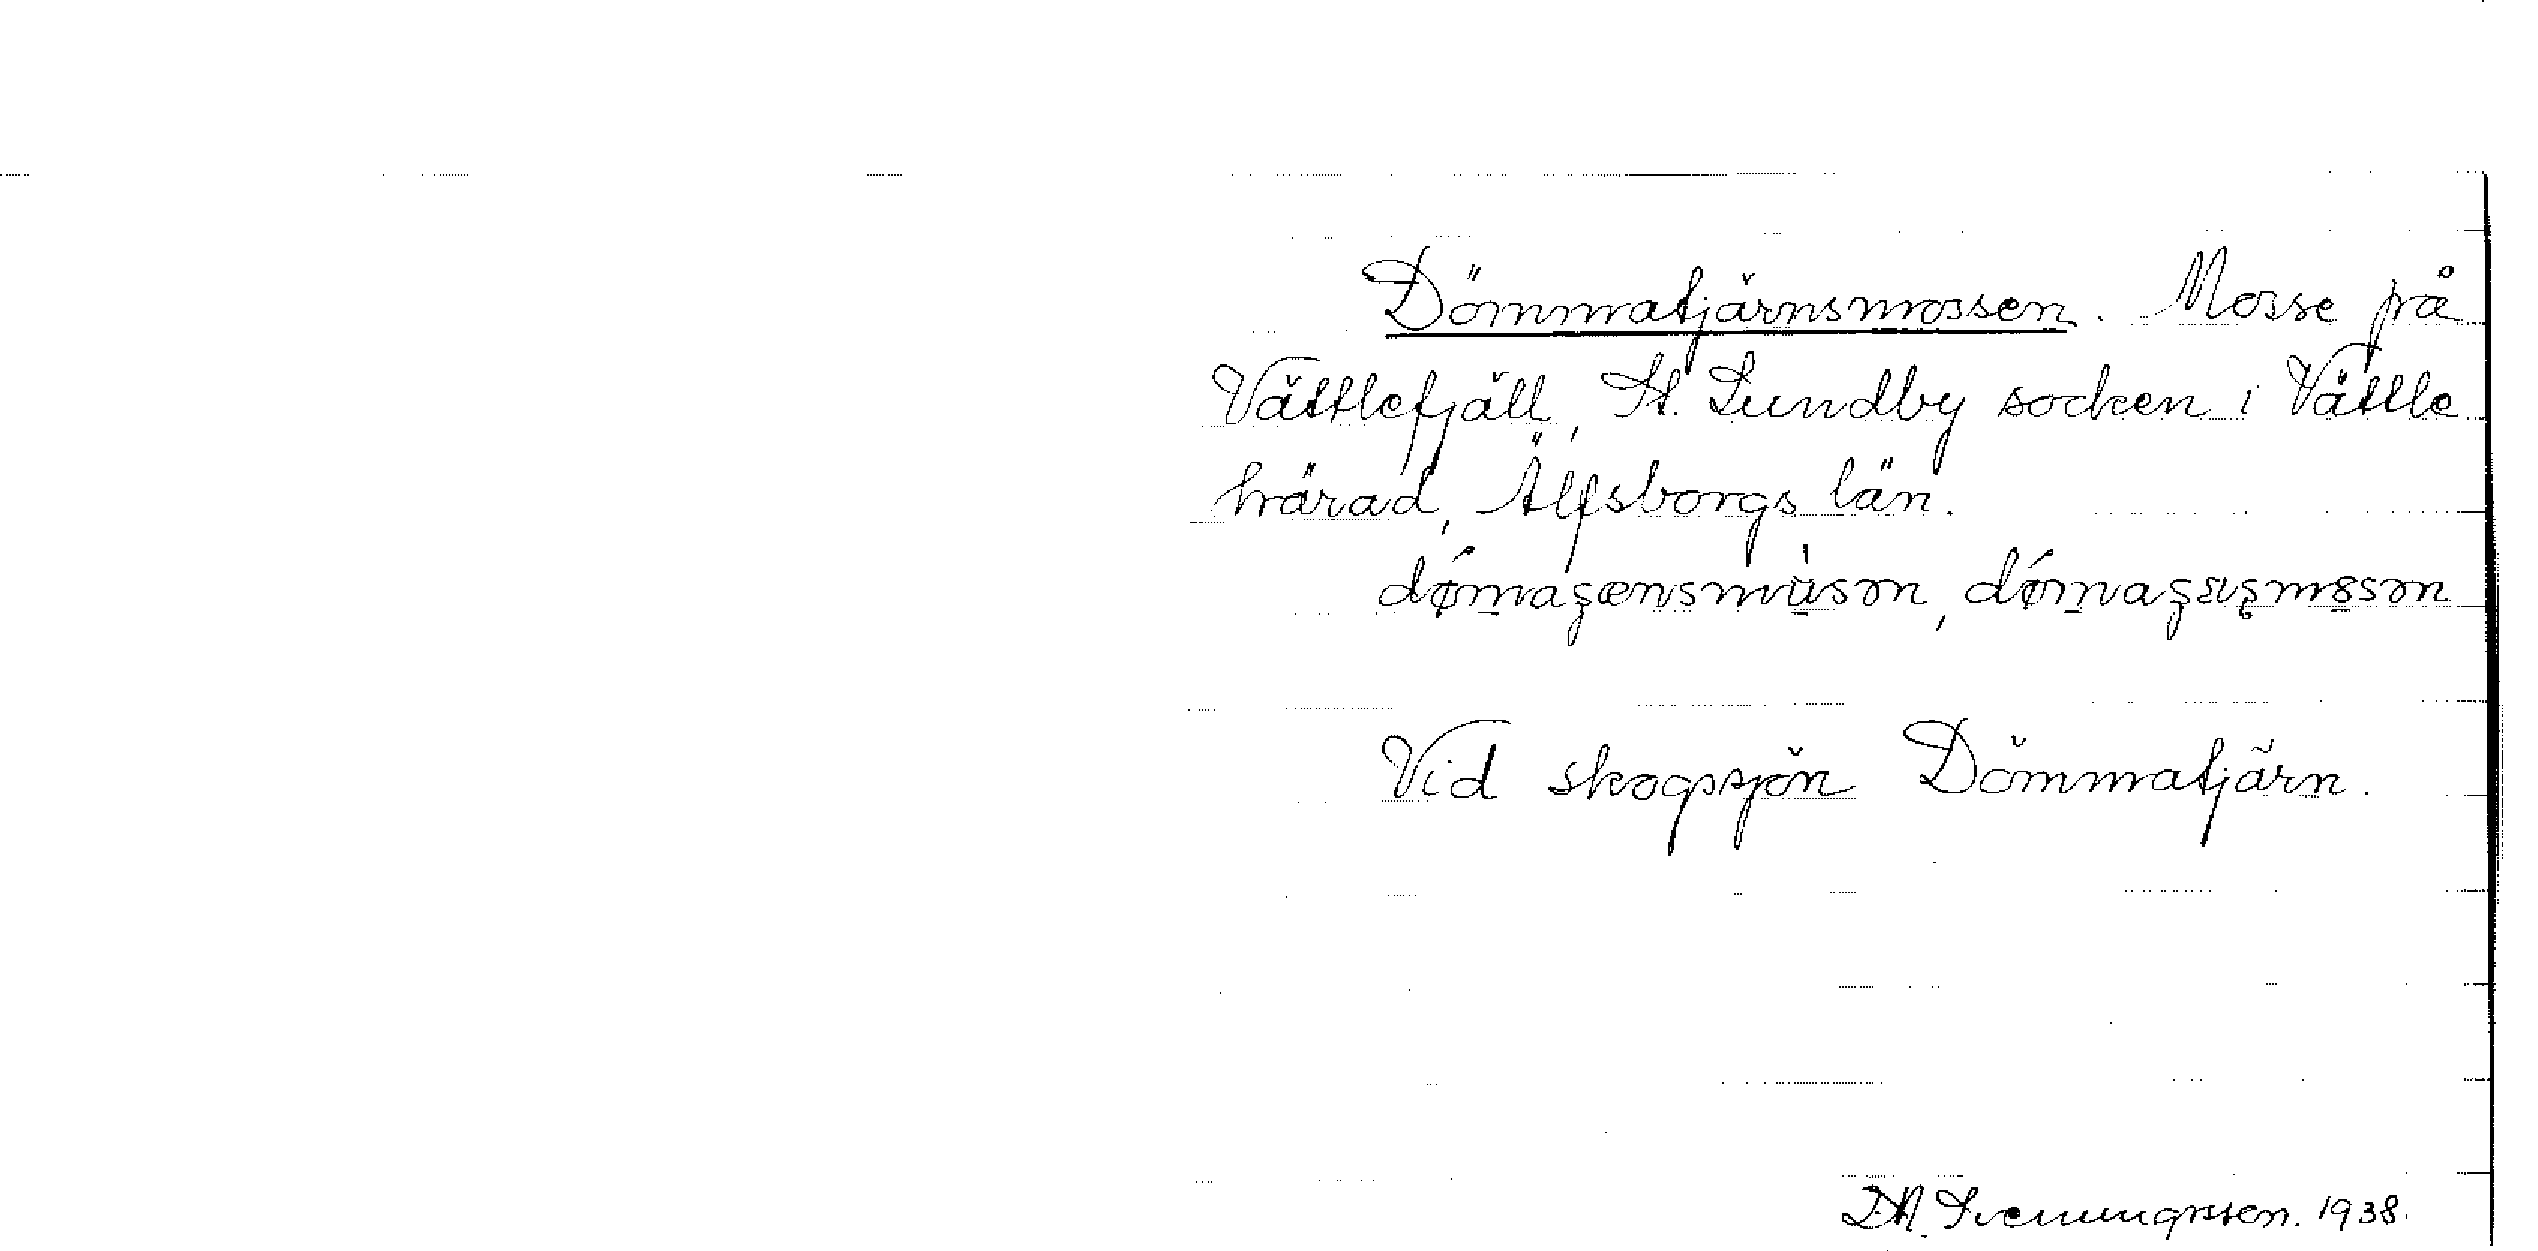 Dömmatjärnsmossen. Mosse på
Vättlefjäll, St. Lundby socken i Vättle
härad, Älfsborgs län.
Vid skogssjön Dömmatjärn.
Svenungsson. 1938.